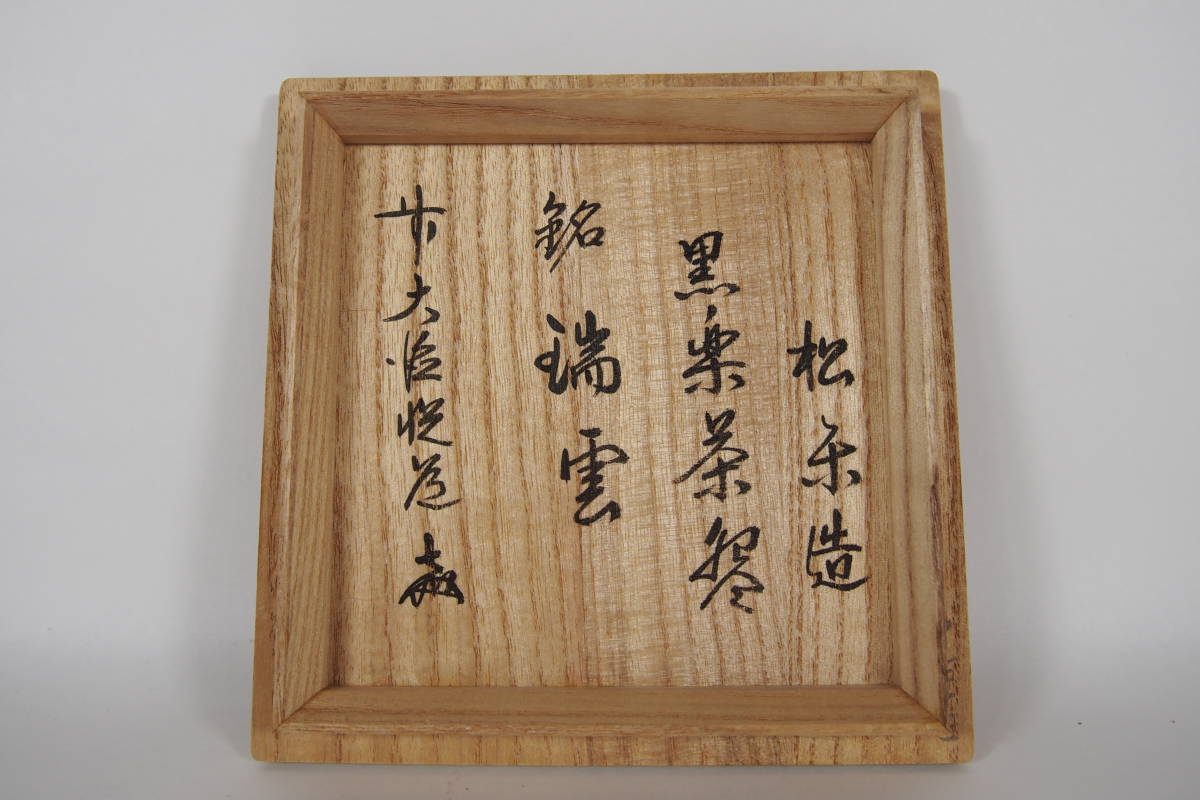 松楽造
黒楽茶碗
銘 瑞雲
前大徳悦道